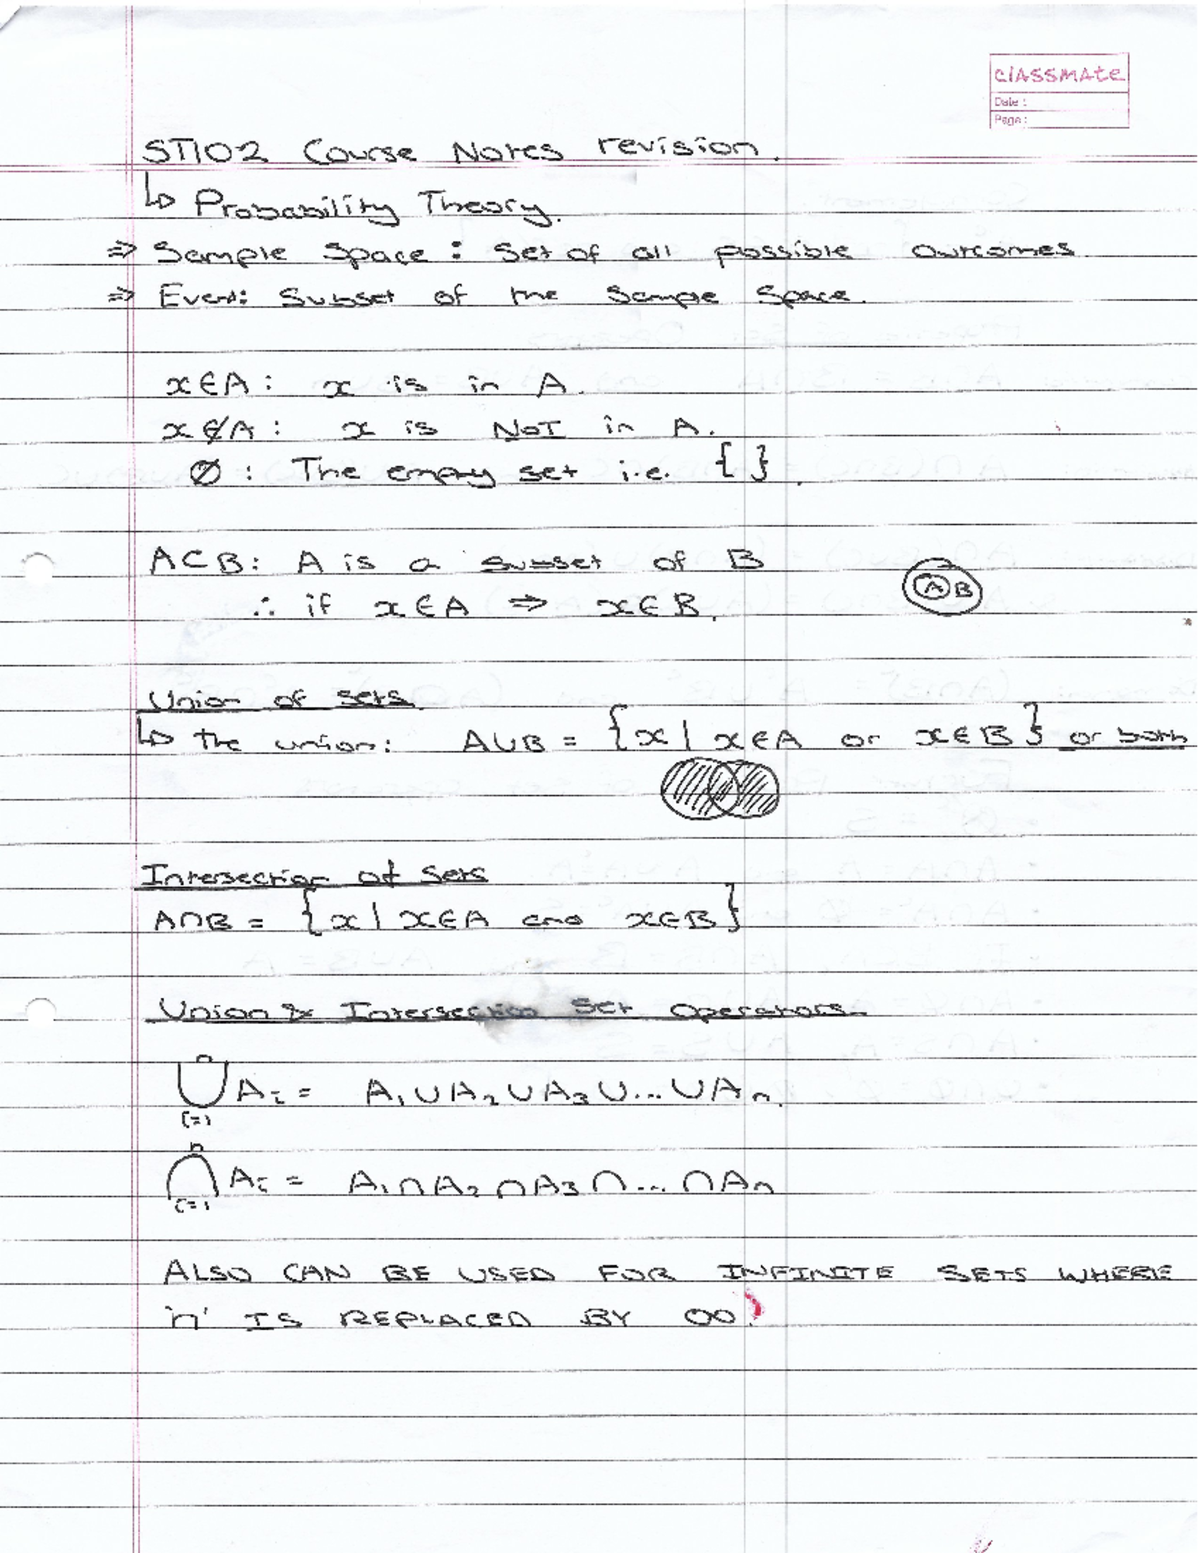 classmate
Date :
Page :
ST102 Course Notes revision.
↳ Probability Theory.
⇒ Sample Space : Set of all possible outcomes
⇒ Event: Subset of the Sample Space.
x∈A : x is in A.
x∉A : x is NOT in A.
∅ : The empty set i.e. { }.
A⊂B: A is a subset of B
A B
∴ if x∈A ⇒ x∈B.
Union of sets
↳ the union: A∪B = {x | x∈A or x∈B} or both
Intersection of sets
A∩B = {x | x∈A and x∈B}
Union & Intersection Set Operators.
n
⋃ Aᵢ = A₁∪A₂∪A₃∪...∪Aₙ.
i=1
n
⋂ Aᵢ = A₁∩A₂∩A₃∩...∩Aₙ
i=1
ALSO CAN BE USED FOR INFINITE SETS WHERE
'n' IS REPLACED BY ∞.